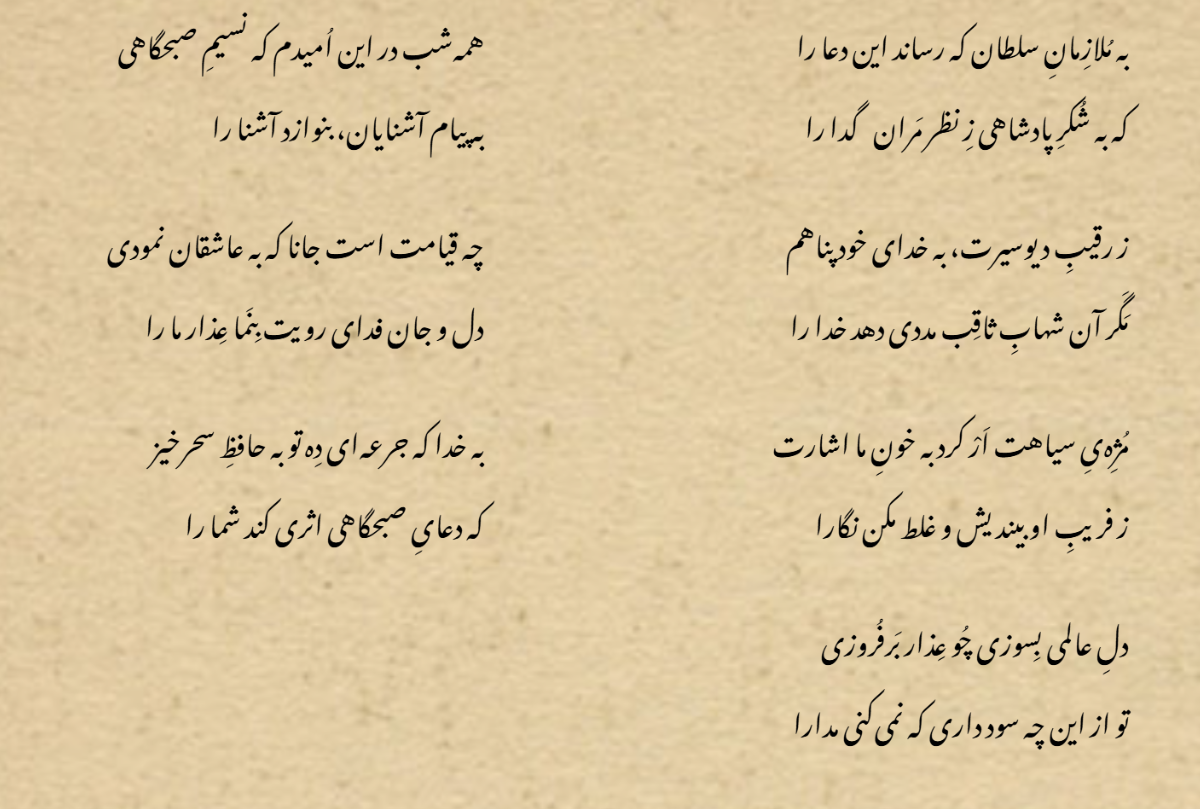 به مُلازِمانِ سلطان که رساند این دعا را
که به شُکرِ پادشاهی زِ نظر مَران گدا را
ز رقیبِ دیوسیرت، به خدای خود پناهم
مَگَر آن شهابِ ثاقِب مددی دهد خدا را
مُژِه‌یِ سیاهت اَر کرد به خونِ ما اشارت
ز فریبِ او بیندیش و غلط مکن نگارا
دلِ عالمی بِسوزی چُو عِذار بَرفُروزی
تو از این چه سود داری که نمی‌کنی مدارا
همه شب در این اُمیدم که نسیمِ صبحگاهی
به پیام آشنایان، بنوازد آشنا را
چه قیامت است جانا که به عاشقان نمودی
دل و جان فدای رویت بِنَما عِذار ما را
به خدا که جرعه‌ای دِه تو به حافظِ سحرخیز
که دعایِ صبحگاهی اثری کند شما را